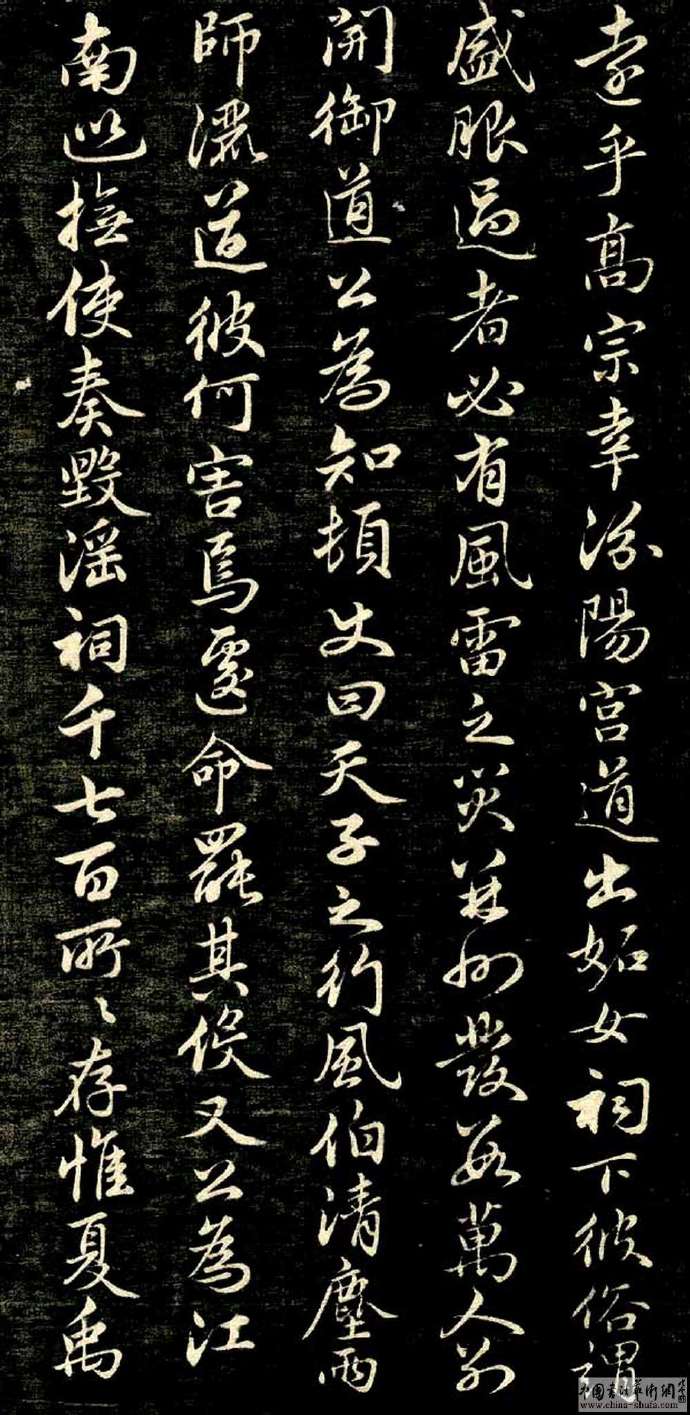 遠乎高宗幸汾陽宮道出妬女祠下彼俗謂
盛服過者必有風雷之災并州發數萬人別
開御道公為知頓使曰天子之行風伯清塵雨
師灑道彼何害焉遽命罷其役又公為江
南巡撫使奏毀淫祠千七百所々存惟夏禹
中国书法艺术網
www.china-shufa.com